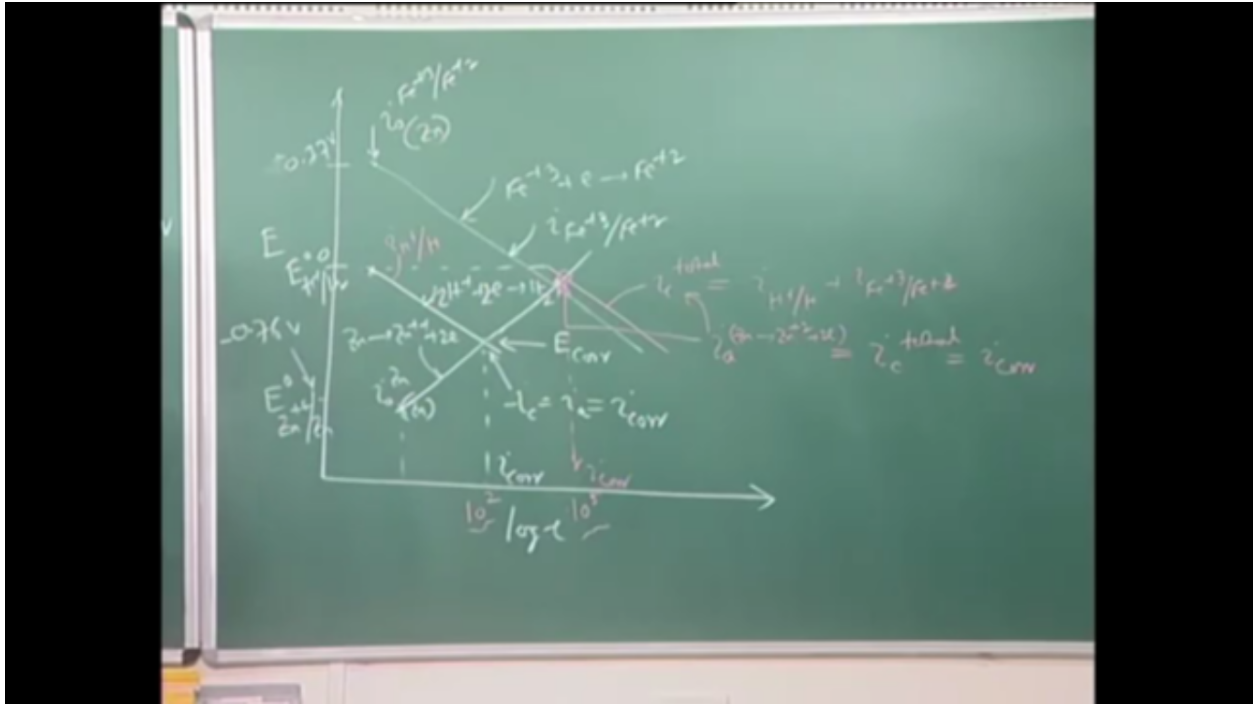 i Fe+3/Fe+2
i0(Zn)
0.77V
Fe+3+e→Fe+2
i Fe+3/Fe+2
E
E0 H+/H2
i0 H+/H
2H++2e→H2
ic total = i H+/H + i Fe+3/Fe+2
-0.76V
Zn→Zn+2+2e
Ecorr
ia (Zn→Zn+2+2e) = ic total = icorr
E0 Zn+2/Zn
i0 Zn (Zn)
ic = ia = icorr
icorr
icorr
10^2
log i